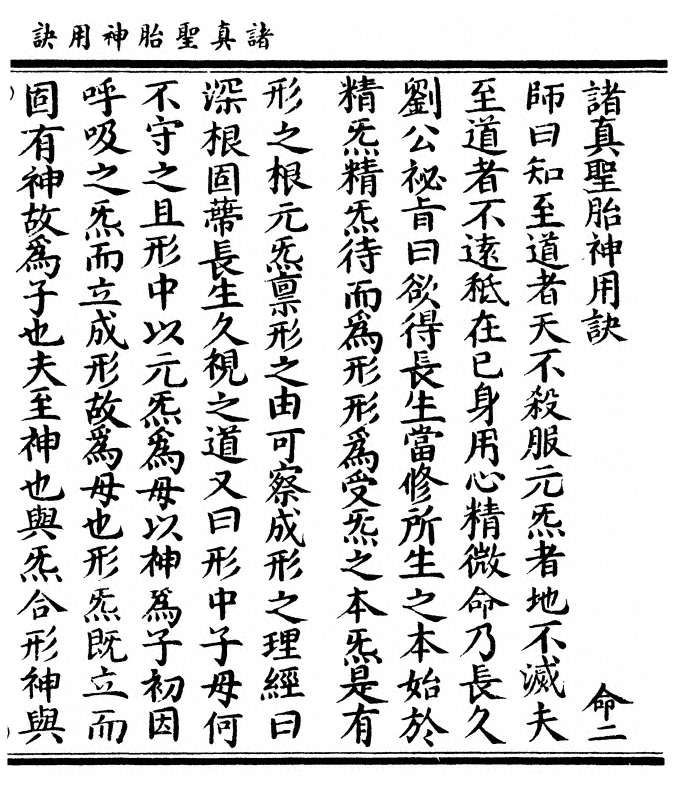 諸真聖胎神用訣
諸真聖胎神用訣
命二
師曰知至道者天不殺服元炁者地不滅夫
至道者不遠秪在己身用心精微命乃長久
劉公祕旨曰欲得長生當修所生之本始於
精炁精炁待而為形形為受炁之本炁是有
形之根元炁禀形之由可察成形之理經曰
深根固蔕長生久視之道又曰形中子母何
不守之且形中以元炁為母以神為子初因
呼吸之炁而立成形故為母也形炁既立而
固有神故為子也夫至神也與炁合形神與